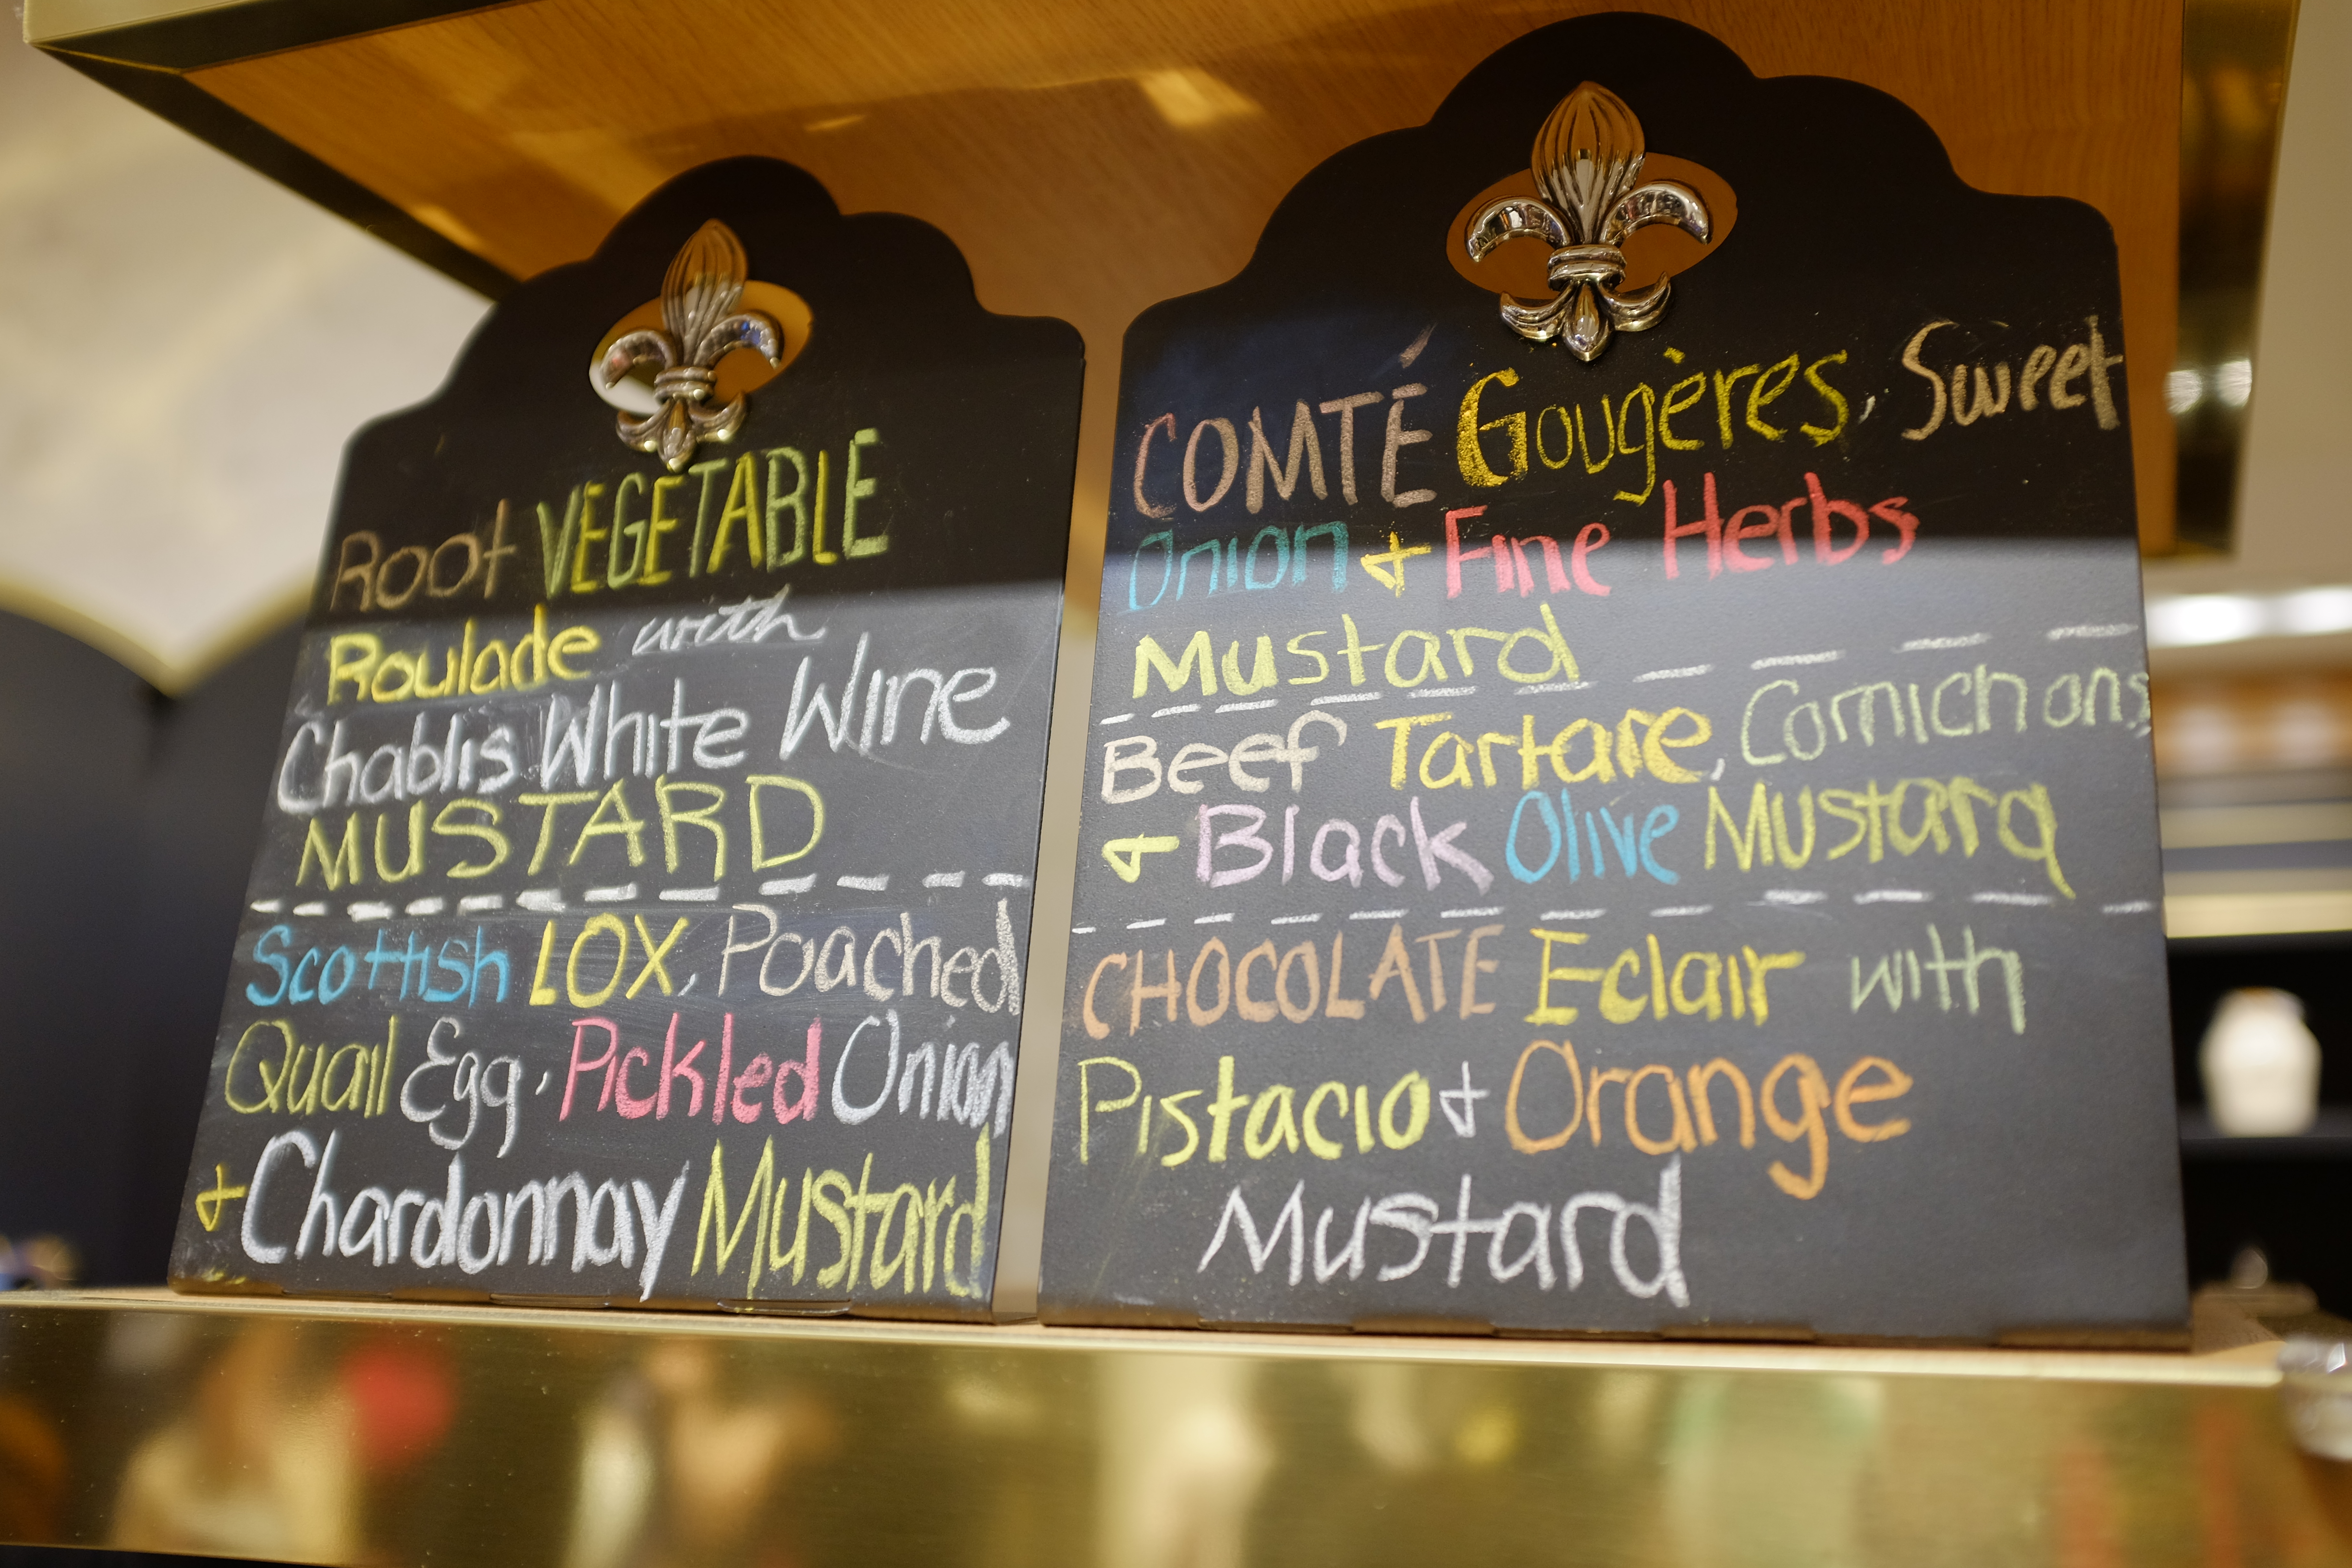 Root VEGETABLE
Roulade with
Chablis White Wine
MUSTARD
Scottish LOX, Poached
Quail Egg, Pickled Onion
+ Chardonnay Mustard
COMTÉ Gougères, Sweet
Onion + Fine Herbs
Mustard
Beef Tartare, Cornichons,
+ Black Olive Mustard
CHOCOLATE Eclair with
Pistacio + Orange
Mustard